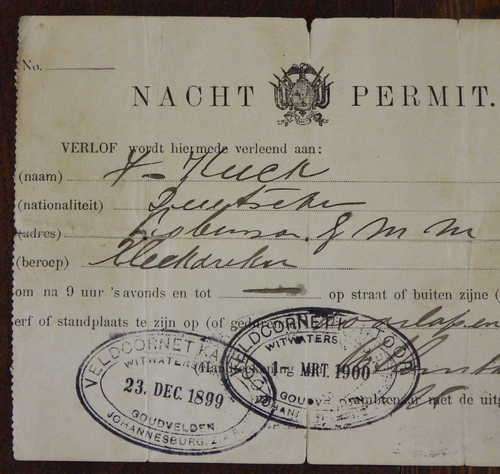 No.
NACHT PERMIT.
VERLOF wordt hiermede verleend aan:
(naam) Kuck
(nationaliteit) Deutscher
(adres) Robinson G M M
(beroep)
om na 9 uur 'savonds en tot op straat of buiten zijne (
erf of standplaats te zijn op
VELDCORNET KA
WITWATERS
23. DEC. 1899
GOUDVELDEN
JOHANNESBURG, Z.A.R.
VELDCORNET K
WITWATERS
1 MRT. 1900
GOUDVE
JOHANN
ambtenaar met de uitg